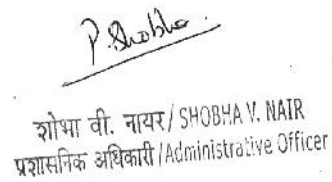 P. Shobha
शोभा वी. नायर/SHOBHA V. NAIR
प्रशासनिक अधिकारी/Administrative Officer